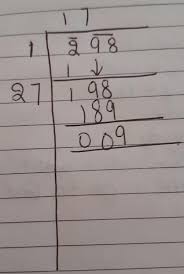 17
1 2 98
1 ↓
27 1 98
189
0 09